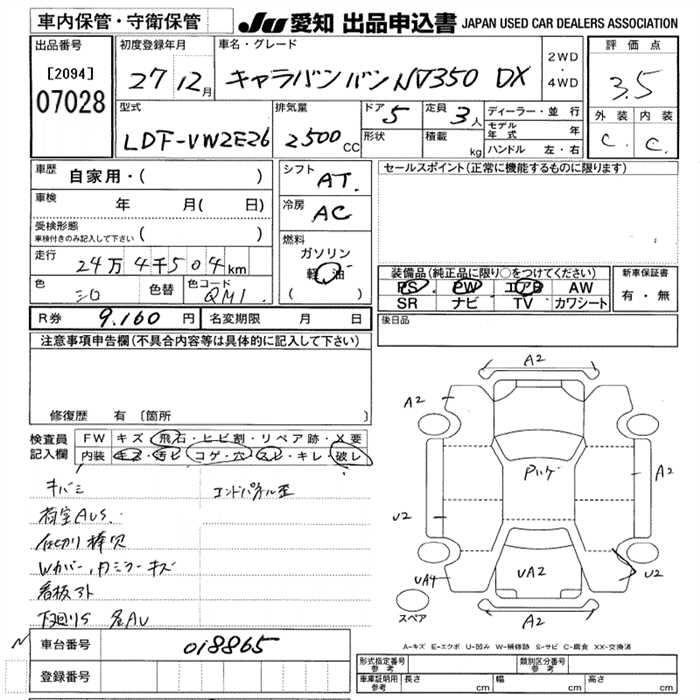 車内保管・守衛保管
JU 愛知 出品申込書 JAPAN USED CAR DEALERS ASSOCIATION
出品番号
[2094]
07028
初度登録年月
27 12月
車名・グレード
キャラバンバン NV350 DX
2WD
・
4WD
評価点
3.5
外装 内装
C. C.
型式
LDF-VW2E26
排気量
2500 CC
ドア 5
形状
定員 3人
積載 kg
ディーラー・並行
モデル年式 年
ハンドル 左・右
車歴
自家用・( )
車検
年 月( 日)
受検形態
車検付きのみ記入して下さい ( )
走行
24万4千504km
色
シロ
色替
色コード
QM1
シフト
AT.
冷房
AC
燃料
ガソリン
軽油
( )
セールスポイント(正常に機能するものに限ります)
装備品(純正品に限り○をつけてください)
PS PW エアB AW
SR ナビ TV カワシート
新車保証書
有・無
後日品
R券 9.160 円 名変期限 月 日
注意事項申告欄(不具合内容等は具体的に記入して下さい)
修復歴 有〔箇所 〕
検査員
記入欄
FW キズ・飛石・ヒビ割・リペア跡・X要
内装 キズ・汚レ・コゲ・穴・スレ・キレ・破レ
キバミ
エンドパネル歪
荷室AUS.
仕切り棒欠
Wカバー、内ミラーキズ
看板アト
下廻りS
A2
A2
Pハゲ
A2
U2
UA4
UA2
U2
A2
スペア
A-キズ E-エクボ U-凹み W-補修跡 S-サビ C-腐食 XX-交換済
車台番号 018865
登録番号
形式指定番号
参考
類別区分番号
参考
車庫証明用
参考
長さ cm 幅 cm 高さ cm